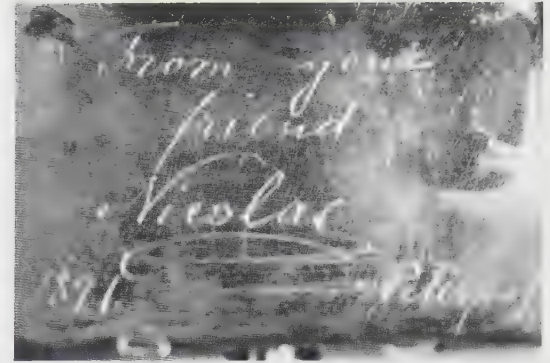 from your
friend
Nicolas